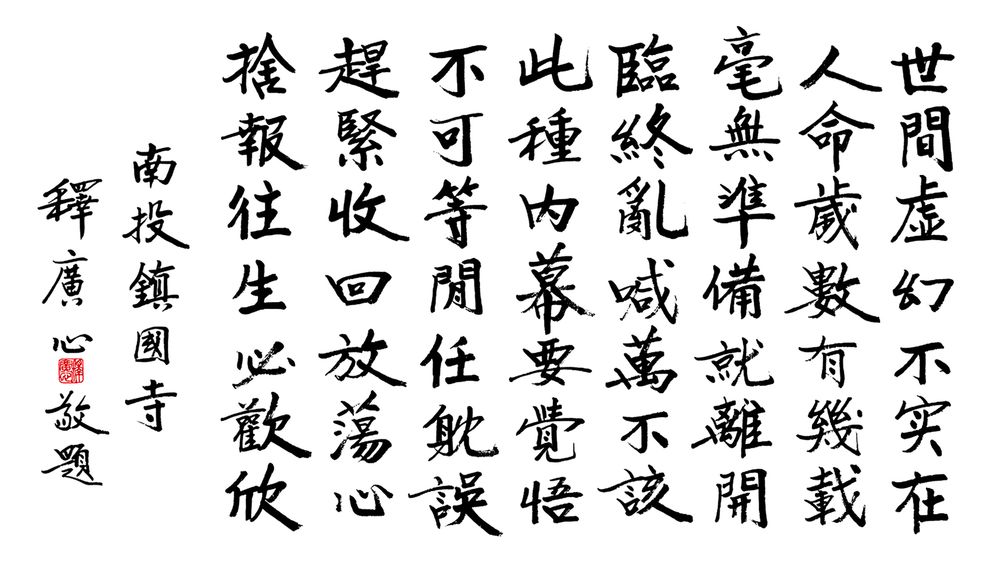 世間虛幻不实在
人命歲數有幾載
毫無準備就離開
臨終亂喊萬不該
此種内幕要覺悟
不可等閒任躭誤
趕緊收回放蕩心
捨報往生必歡欣
南投鎮國寺
釋廣心敬題